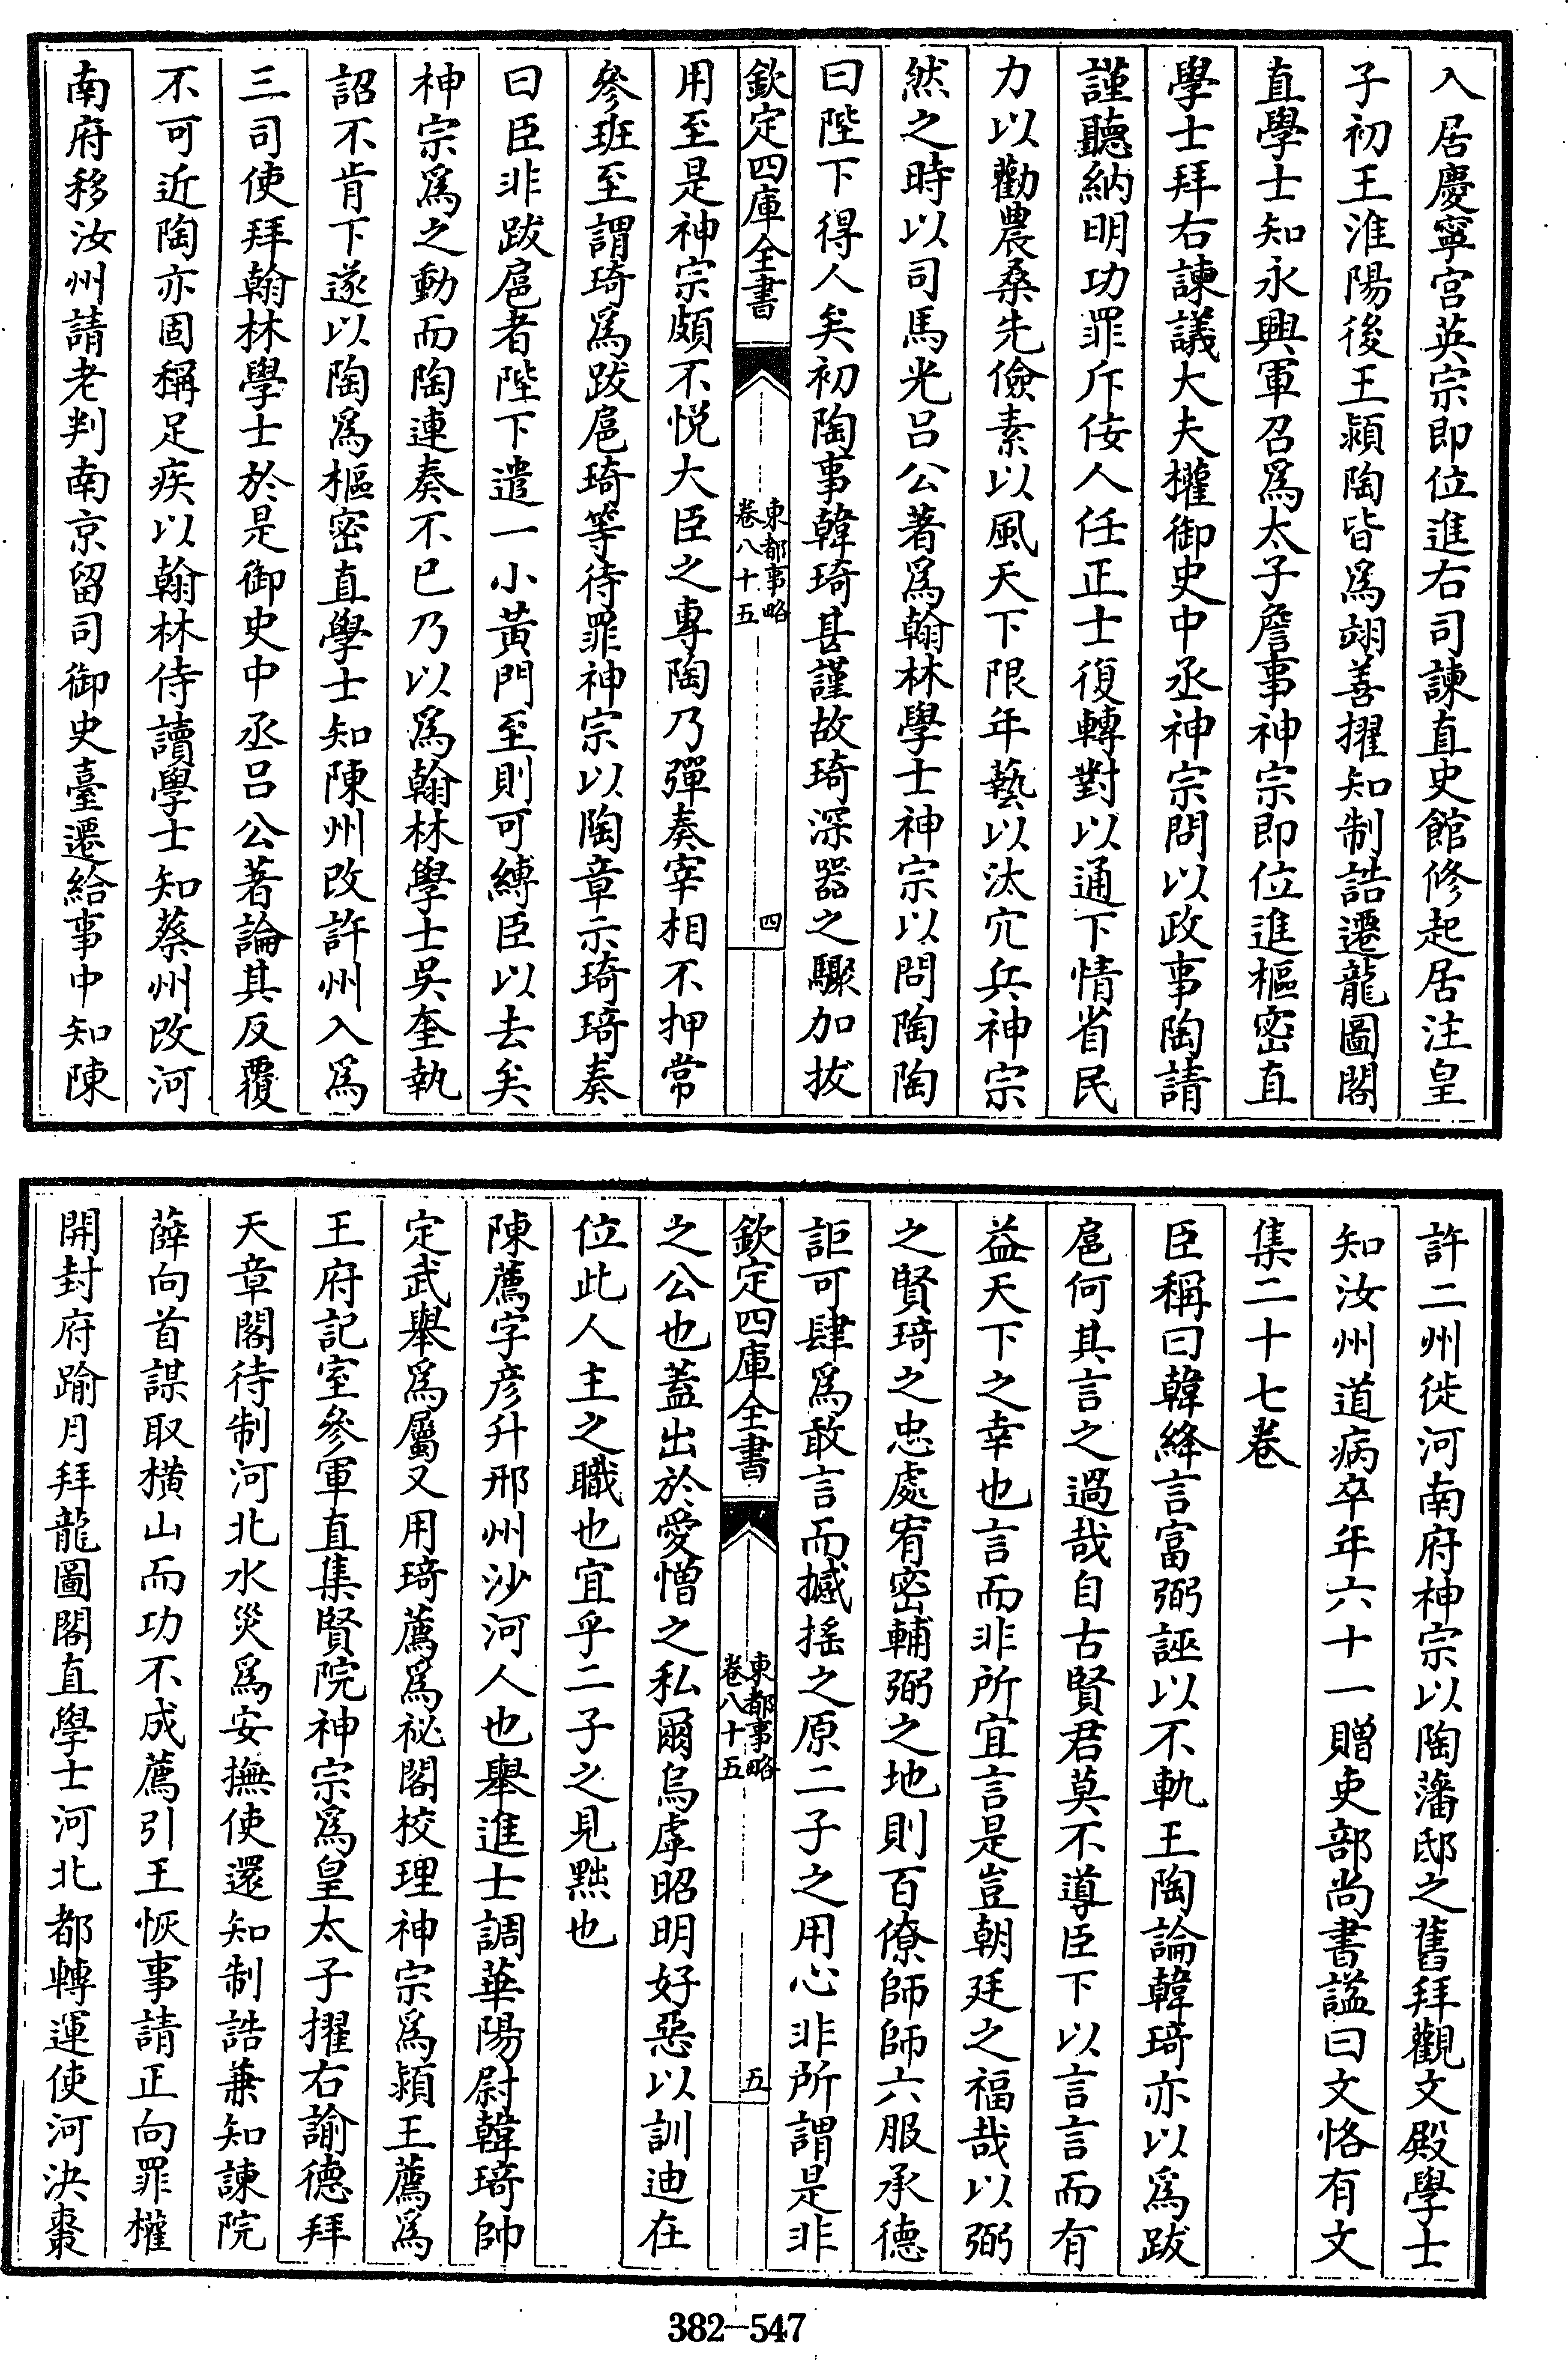 入居慶寧宫英宗即位進右司諫直史館修起居注皇
子初王淮陽後王潁陶皆爲翊善擢知制誥遷龍圖閣
直學士知永興軍召爲太子詹事神宗即位進樞密直
學士拜右諫議大夫權御史中丞神宗問以政事陶請
謹聽納明功罪斥佞人任正士復轉對以通下情省民
力以勸農桑先儉素以風天下限年藝以汰冗兵神宗
然之時以司馬光吕公著爲翰林學士神宗以問陶陶
曰陛下得人矣初陶事韓琦甚謹故琦深器之驟加拔
欽定四庫全書
東都事略
卷八十五
四
用至是神宗頗不悦大臣之專陶乃彈奏宰相不押常
參班至謂琦爲跋扈琦等待罪神宗以陶章示琦琦奏
曰臣非跋扈者陛下遣一小黄門至則可縛臣以去矣
神宗爲之動而陶連奏不已乃以爲翰林學士吳奎執
詔不肯下遂以陶爲樞密直學士知陳州改許州入爲
三司使拜翰林學士於是御史中丞吕公著論其反覆
不可近陶亦固稱足疾以翰林侍讀學士知蔡州改河
南府移汝州請老判南京留司御史臺遷給事中知陳
許二州徙河南府神宗以陶藩邸之舊拜觀文殿學士
知汝州道病卒年六十一贈吏部尚書謚曰文恪有文
集二十七卷
臣稱曰韓絳言富弼誣以不軌王陶論韓琦亦以爲跋
扈何其言之過哉自古賢君莫不導臣下以言言而有
益天下之幸也言而非所宜言是豈朝廷之福哉以弼
之賢琦之忠處宥密輔弼之地則百僚師師六服承德
詎可肆爲敢言而撼摇之原二子之用心非所謂是非
欽定四庫全書
東都事略
卷八十五
五
之公也蓋出於愛憎之私爾烏虖昭明好惡以訓迪在
位此人主之職也宜乎二子之見黜也
陳薦字彦升邢州沙河人也舉進士調華陽尉韓琦帥
定武舉爲屬又用琦薦爲祕閣校理神宗爲潁王薦爲
王府記室參軍直集賢院神宗爲皇太子擢右諭德拜
天章閣待制河北水災爲安撫使還知制誥兼知諫院
薛向首謀取横山而功不成薦引王恢事請正向罪權
開封府踰月拜龍圖閣直學士河北都轉運使河決棗
382-547